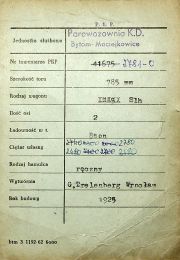 P. K. P.
Jednostka służbowa
Parowozownia K.D.
Bytom-Maciejkowice
Nr inwentarza PKP 41575 2781-0
Szerokość toru 785 mm
Rodzaj wagonu
Ilość osi 2
Ładowność w t.
Ciężar własny 2750
Rodzaj hamulca ręczny
Wytwórnia G.Trelenberg Wrocław
Rok budowy 1925